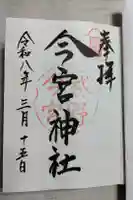 奉拝
今宮神社
令和八年三月十五日